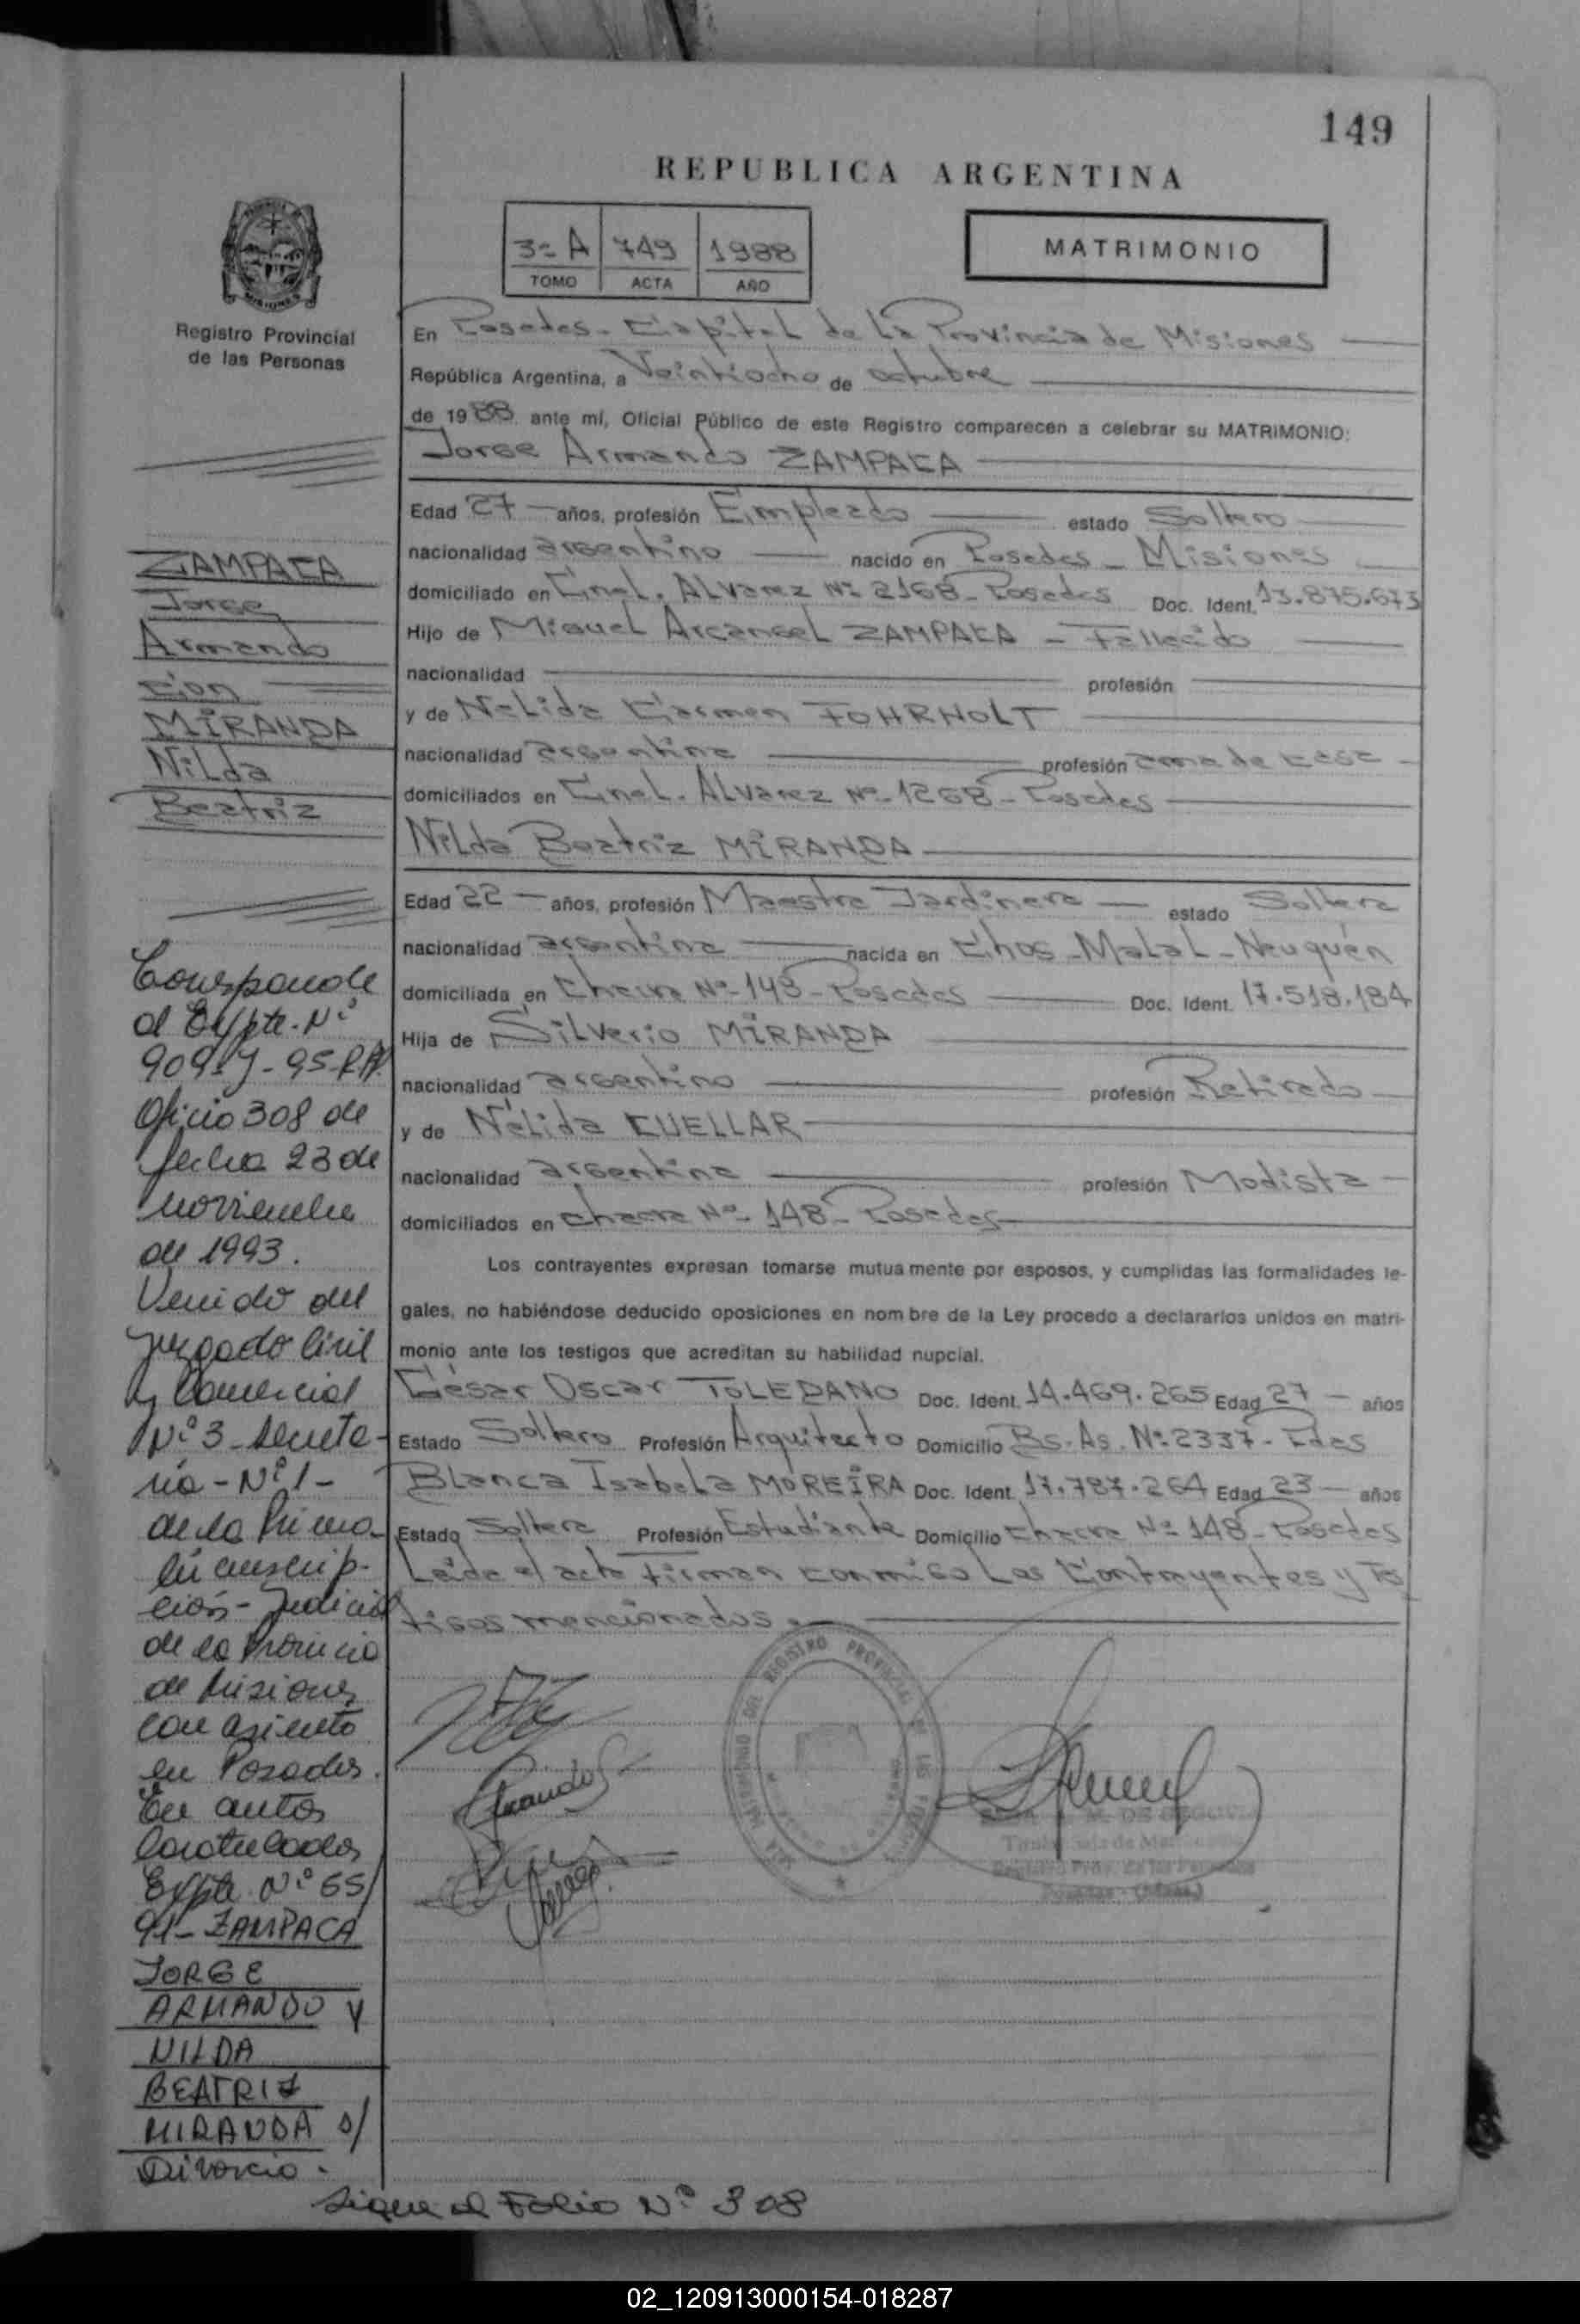 149
REPUBLICA ARGENTINA
3= A 749 1988
TOMO ACTA AÑO
MATRIMONIO
MISIONES
Registro Provincial
de las Personas
En Posadas - Capital de la Provincia de Misiones
República Argentina, a Veintiocho de octubre
de 1988 ante mí, Oficial Público de este Registro comparecen a celebrar su MATRIMONIO:
Jorge Armando ZAMPACA
Edad 27 años, profesión Empleado estado Soltero
nacionalidad argentino nacido en Posadas - Misiones
domiciliado en Cnel. Alvarez Nº 2168 - Posadas Doc. Ident. 13.875.673
Hijo de Miguel Arcangel ZAMPACA - Fallecido
nacionalidad profesión
y de Nelida Carmen FOHRHOLT
nacionalidad argentina profesión ama de casa
domiciliados en Cnel. Alvarez Nº 1268 - Posadas
Nilda Beatriz MIRANDA
Edad 22 años, profesión Maestra Jardinera estado Soltera
nacionalidad argentina nacida en Chos - Malal - Neuquén
domiciliada en Chacra Nº 148 - Posadas Doc. Ident. 17.518.184
Hija de Silverio MIRANDA
nacionalidad argentino profesión Retirado
y de Nélida CUELLAR
nacionalidad argentina profesión Modista
domiciliados en chacra Nº 148 - Posadas
Los contrayentes expresan tomarse mutuamente por esposos, y cumplidas las formalidades le-
gales, no habiéndose deducido oposiciones en nombre de la Ley procedo a declararlos unidos en matri-
monio ante los testigos que acreditan su habilidad nupcial.
César Oscar TOLEDANO Doc. Ident. 14.469.265 Edad 27 años
Estado Soltero Profesión Arquitecto Domicilio Bs. As. Nº 2337 - Pdas
Blanca Isabela MOREIRA Doc. Ident. 17.787.264 Edad 23 años
Estado Soltera Profesión Estudiante Domicilio chacra Nº 148 - Posadas
Leida el acta firman conmigo los Contrayentes y Tes
tigos mencionados
ZAMPACA
Jorge
Armando
con
MIRANDA
Nilda
Beatriz
Corresponde
al Expte. Nº
909-J-95-RP.
Oficio 308 de
fecha 23 de
noviembre
de 1993.
Venido del
juzgado Civil
y Comercial
Nº 3 - Secreta-
ría - Nº 1 -
de la Primera
Circunscrip-
ción - Judicial
de la Provincia
de Misiones
con asiento
en Posadas.
En autos
Caratulados
Expte. Nº 65/
91 - ZAMPACA
JORGE
ARMANDO Y
NILDA
BEATRIZ
MIRANDA s/
Divorcio.
Sigue al Folio Nº 308
REGISTRO PROVINCIAL DE LAS PERSONAS
M. DE SEGOVIA
Posadas - (Mnes.)
02_120913000154-018287